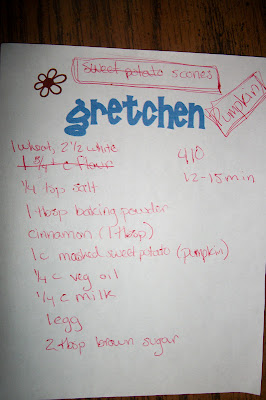 sweet potato scones
pumpkin
gretchen
1 wheat, 2 1/2 white
1 3/4 c flour
410
1/4 tsp salt
12-15 min
1 tbsp baking powder
cinnamon (1 tbsp)
1 c mashed sweet potato (pumpkin)
1/4 c veg oil
1/4 c milk
1 egg
2 tbsp brown sugar